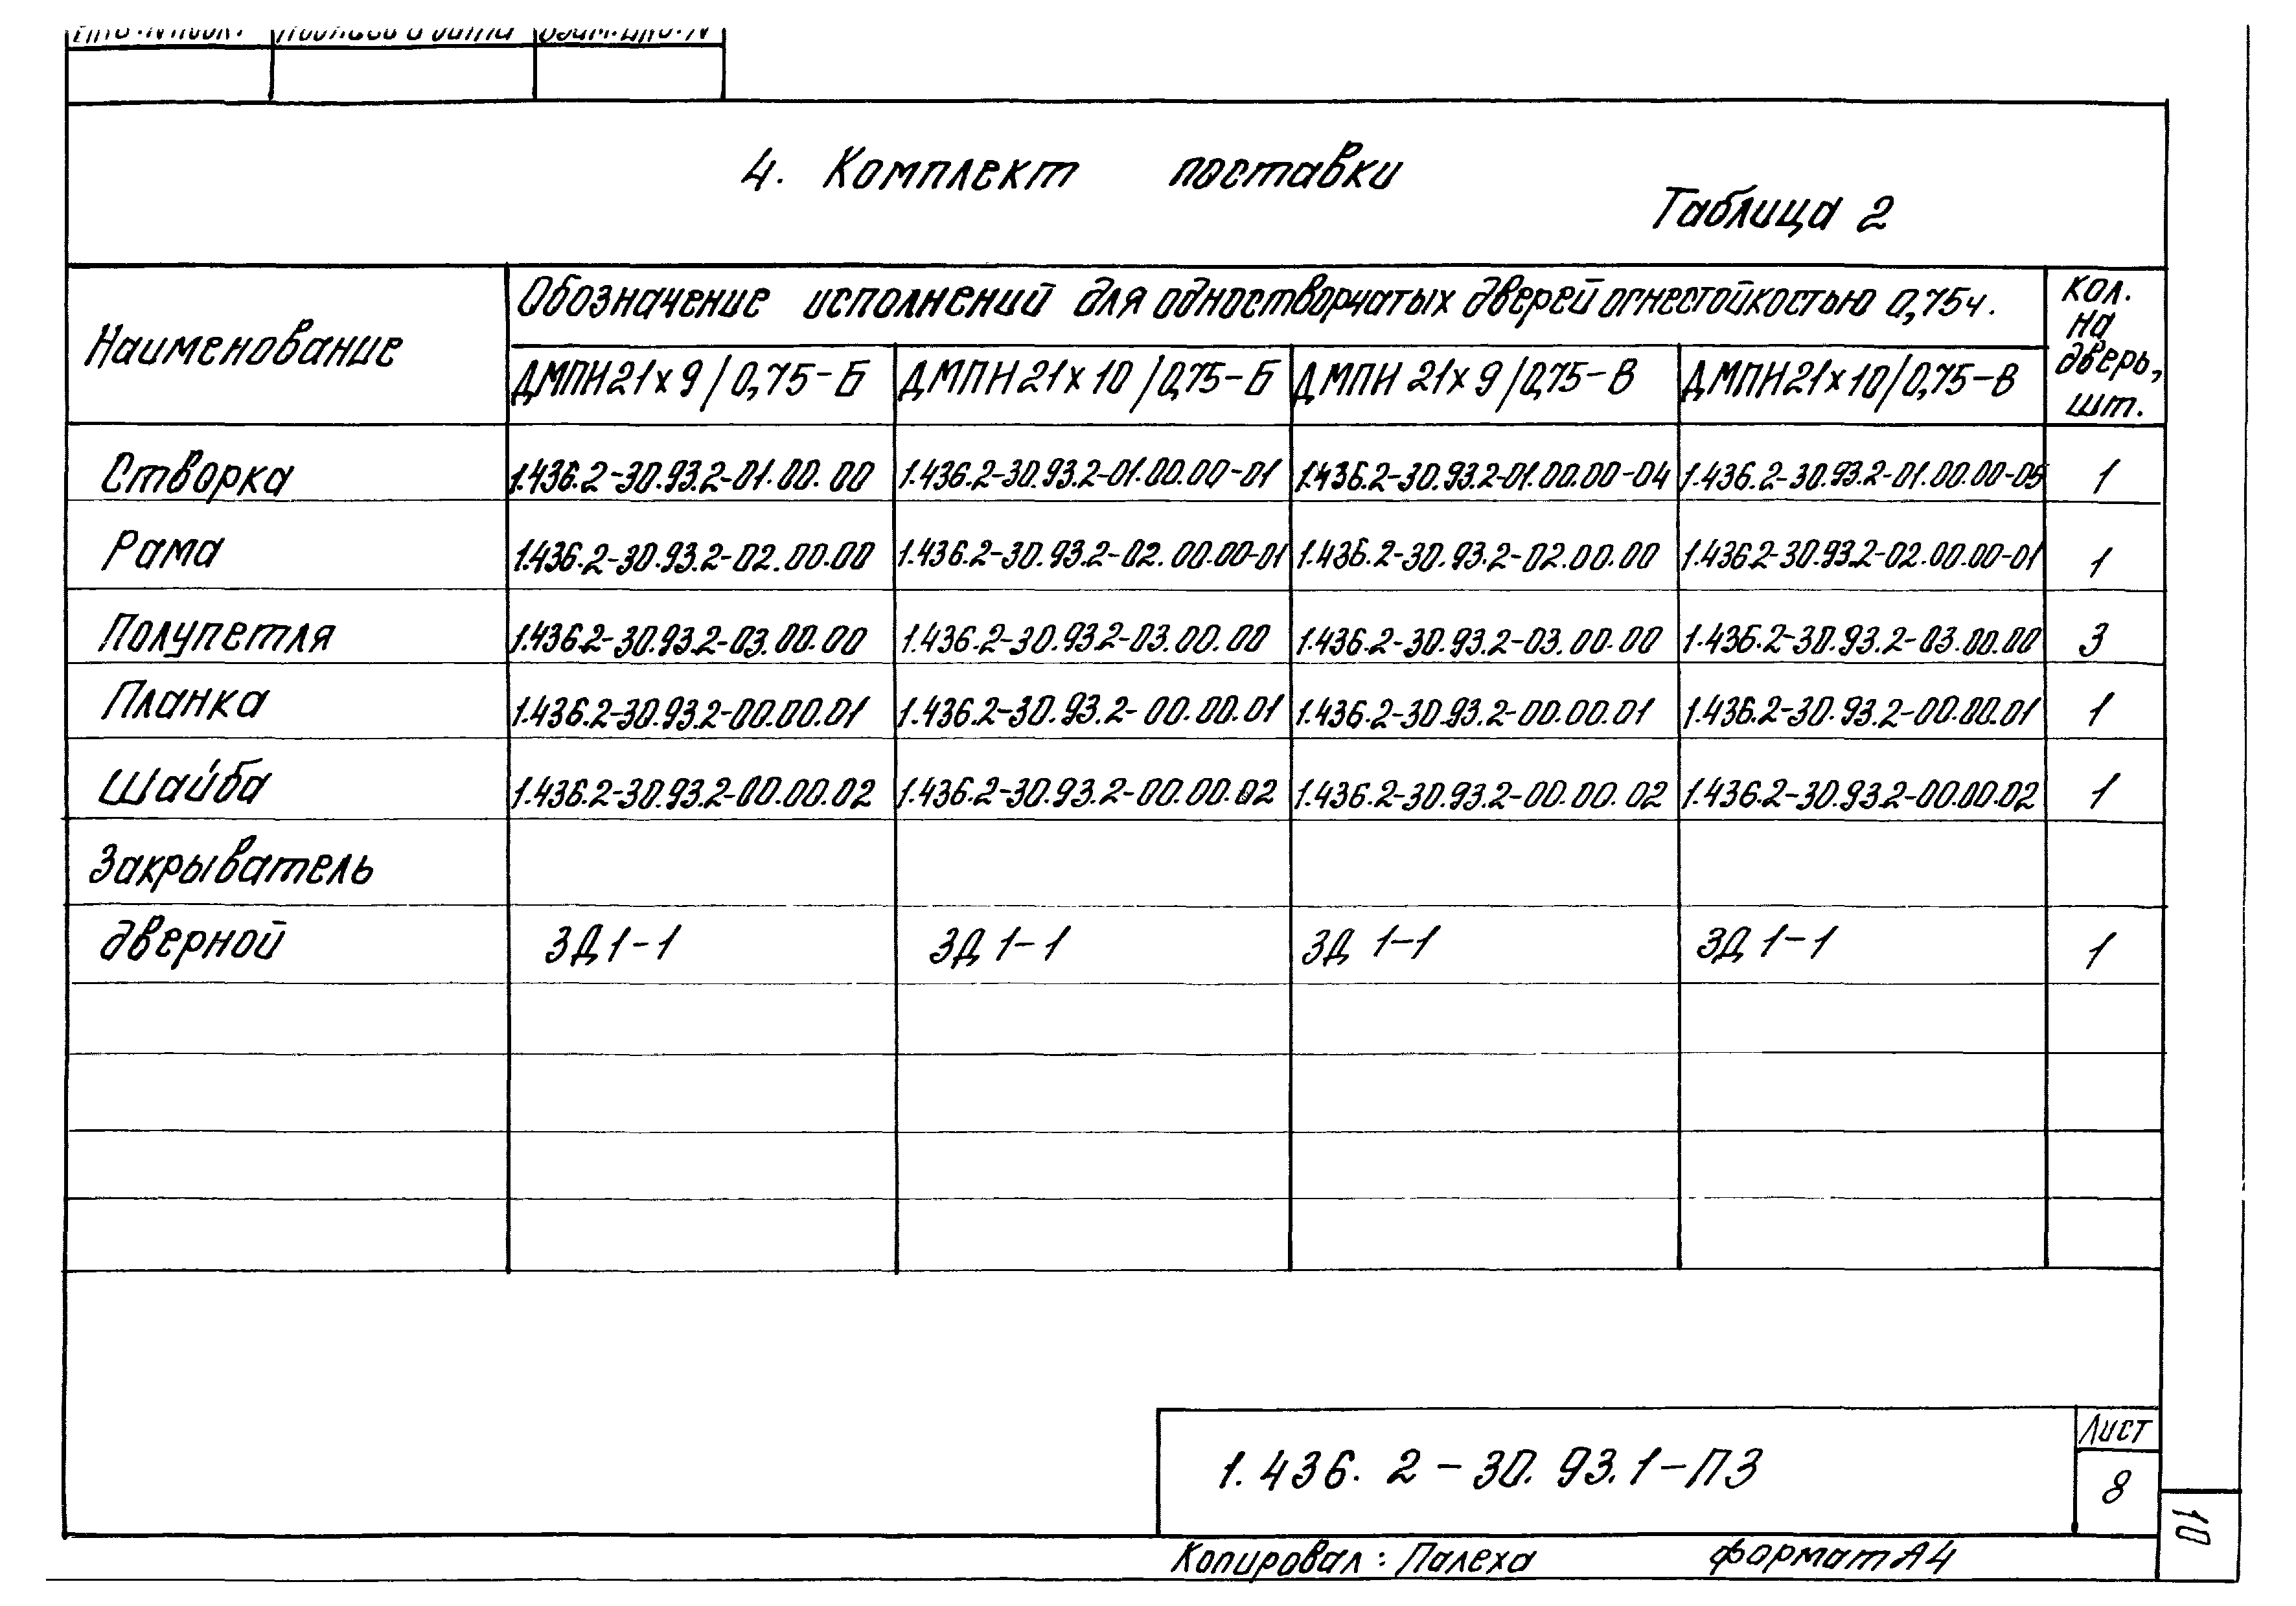 4. Комплект поставки
Таблица 2
Наименование
Обозначение исполнений для одностворчатых дверей огнестойкостью 0,75ч.
Кол. на дверь, шт.
ДМПН21х9/0,75-Б ДМПН21х10/0,75-Б ДМПН 21х9/0,75-В ДМПН21х10/0,75-В
Створка 1.436.2-30.93.2-01.00.00 1.436.2-30.93.2-01.00.00-01 1.436.2-30.93.2-01.00.00-04 1.436.2-30.93.2-01.00.00-05 1
Рама 1.436.2-30.93.2-02.00.00 1.436.2-30.93.2-02.00.00-01 1.436.2-30.93.2-02.00.00 1.436.2-30.93.2-02.00.00-01 1
Полупетля 1.436.2-30.93.2-03.00.00 1.436.2-30.93.2-03.00.00 1.436.2-30.93.2-03.00.00 1.436.2-30.93.2-03.00.00 3
Планка 1.436.2-30.93.2-00.00.01 1.436.2-30.93.2-00.00.01 1.436.2-30.93.2-00.00.01 1.436.2-30.93.2-00.00.01 1
Шайба 1.436.2-30.93.2-00.00.02 1.436.2-30.93.2-00.00.02 1.436.2-30.93.2-00.00.02 1.436.2-30.93.2-00.00.02 1
Закрыватель
дверной ЗД1-1 ЗД 1-1 ЗД 1-1 ЗД 1-1 1
1.436.2-30.93.1-ПЗ
Лист
8
10
Копировал: Палеха формат А4